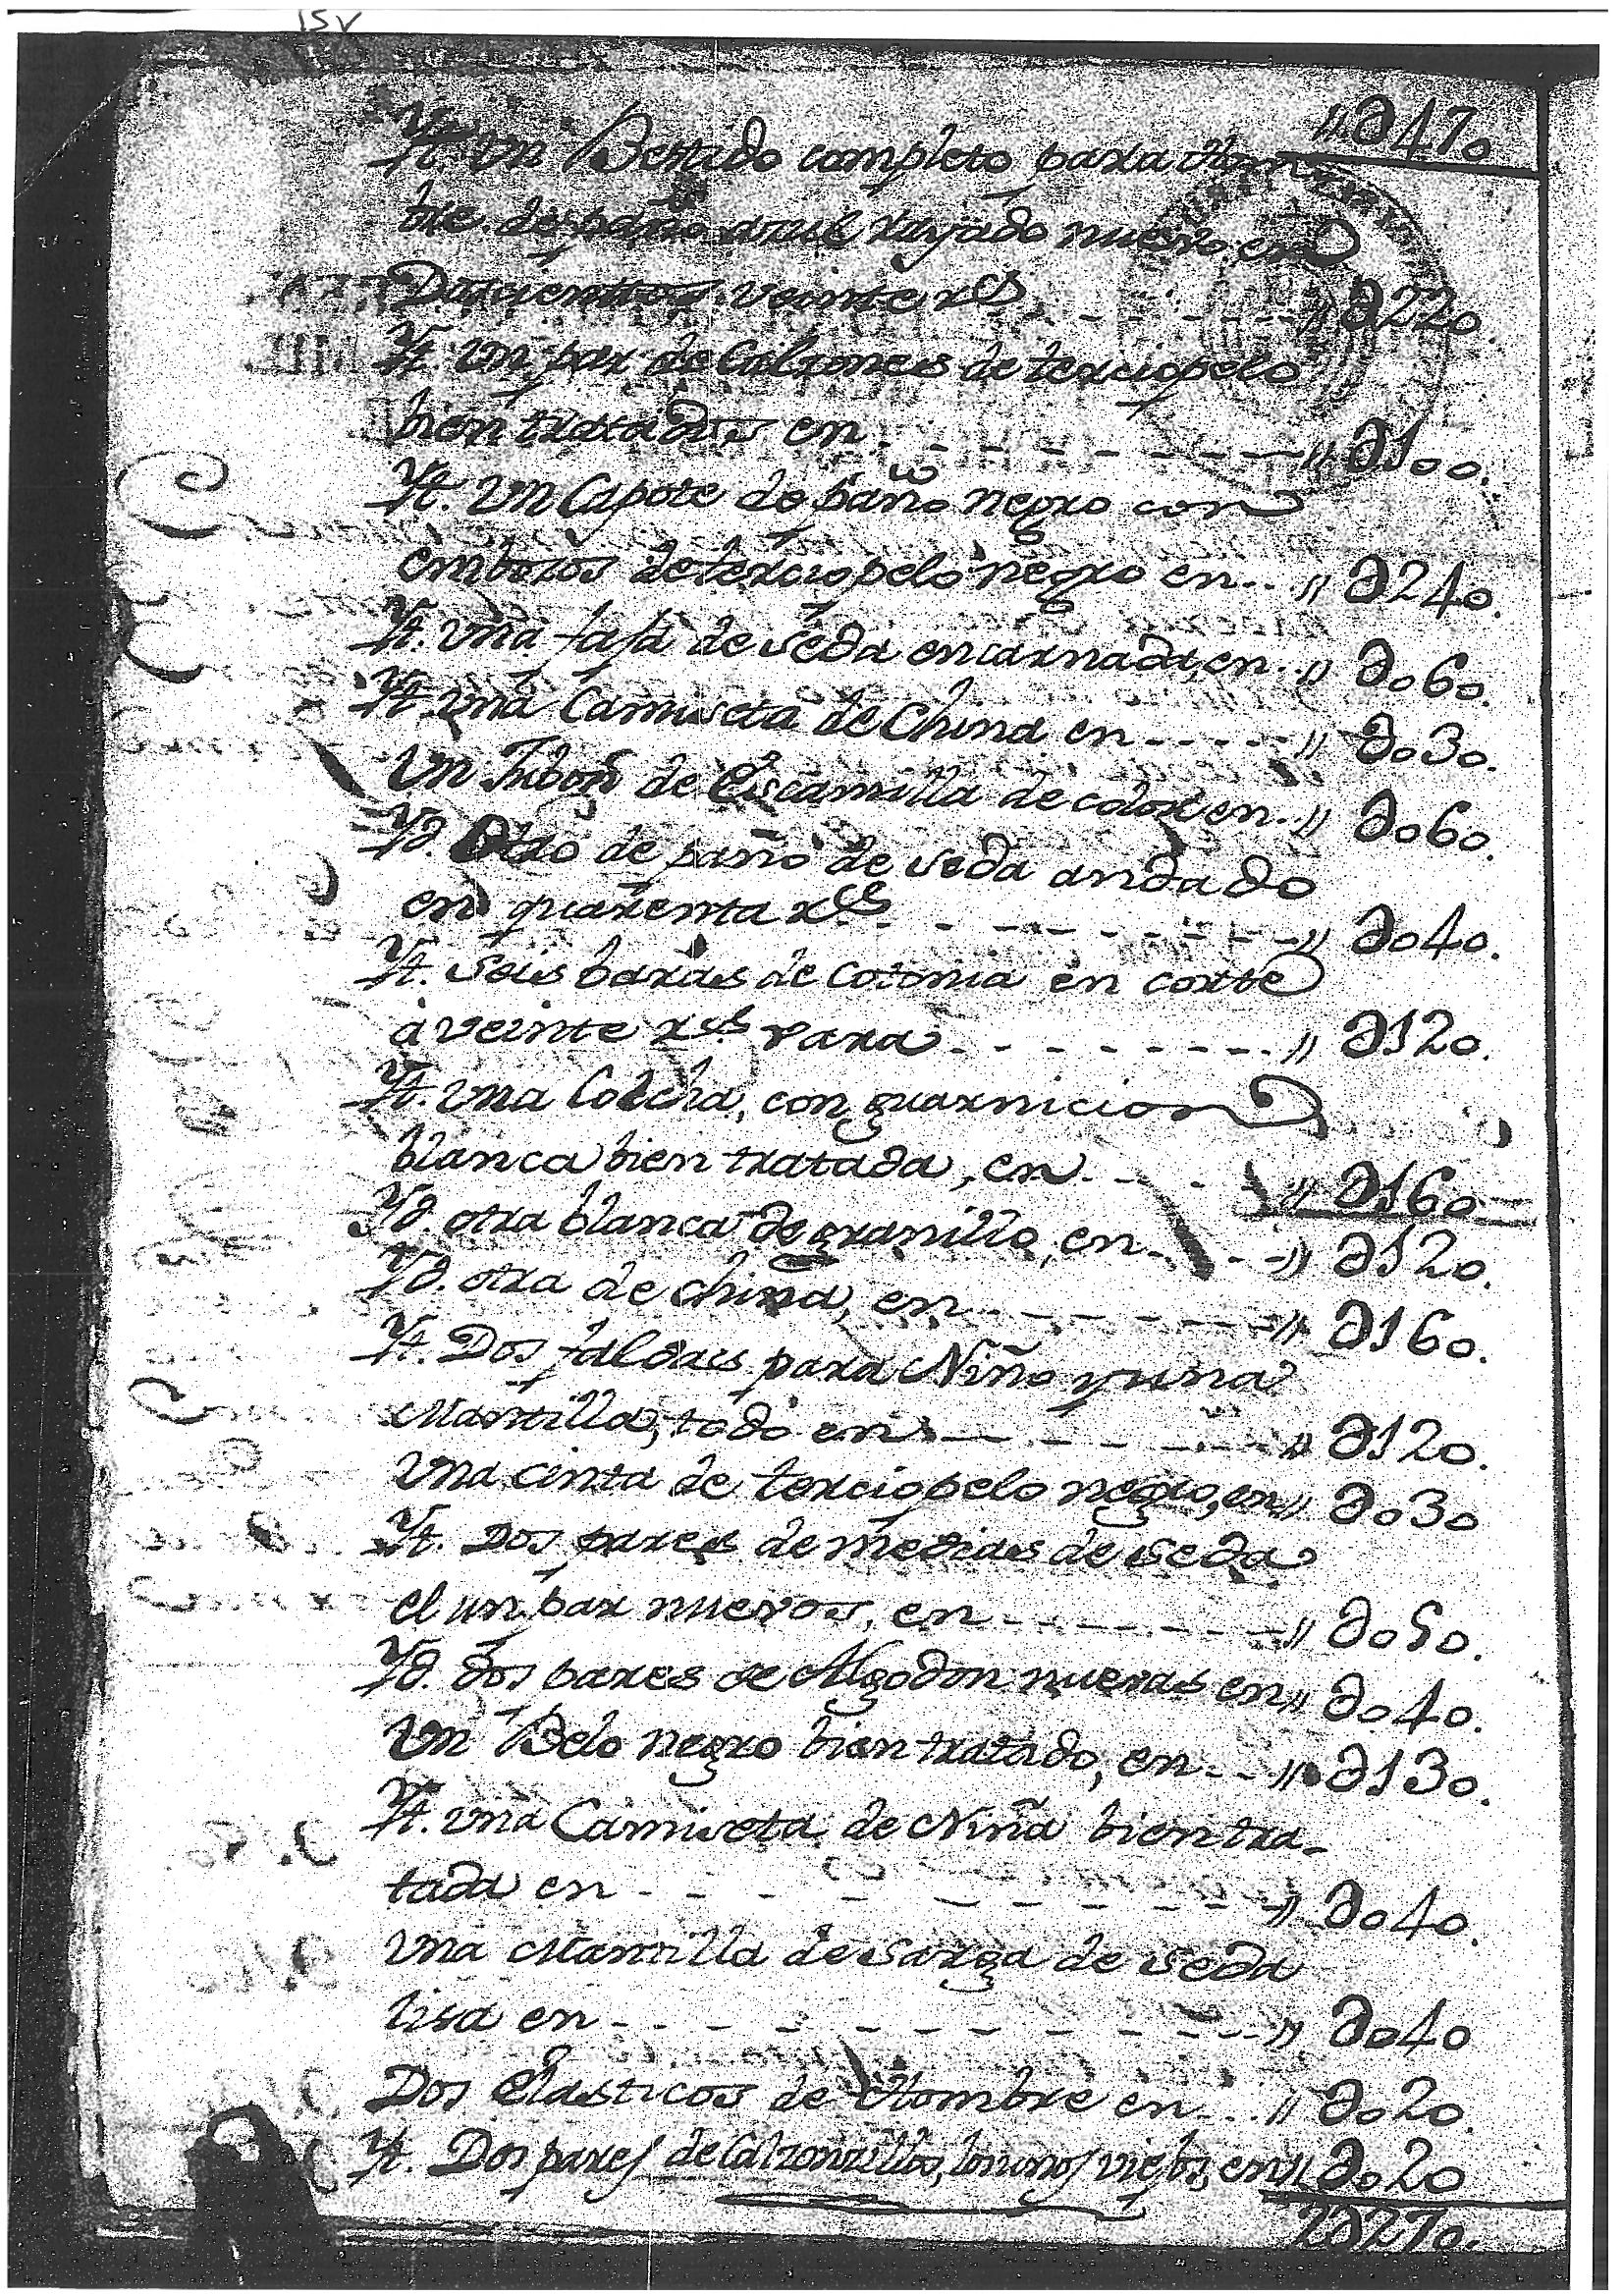 15v
" ∂470
Yt. Vn Bestido completo para Hom
bre de paño azul rayado nuevo en
Doscientos veinte rs - - - - " ∂220.
Yt. Vn par de Calzones de terciopelo
bien tratados en - - - - - - - " ∂100.
Yt. Vn Capote de paño negro con
embozos de terciopelo negro en - - " ∂240.
Yt. Vna faja de seda encarnada, en - - " ∂060.
Yt. Vna Camiseta de China en - - - - - " ∂030.
Vn Jubon de Escamilla de color en - - " ∂060.
Yd. Otro de paño de seda andado
en quarenta rs - - - - - - - - " ∂040.
Yt. Seis baras de Cotonia en corte
à veinte rs. vara - - - - - - - - - " ∂120.
Yt. Vna Colcha, con guarnicion
blanca bien tratada, en - - - - " ∂160
Yd. otra blanca de granillo, en - - - - " ∂120.
Yd. otra de china, en - - - - - - - " ∂160.
Yt. Dos faldas para Niño y una
Mantilla, todo en - - - - - - - " ∂120.
Vna cinta de terciopelo negro, en " ∂030
Yt. Dos pares de medias de seda
el un par nuevos, en - - - - - - - " ∂050.
Yd. dos pares de Algodon nuevas en " ∂040.
Vn Belo negro bien tratado, en - - " ∂130.
Yt. Vna Camiseta de Niña bien tra-
tada en - - - - - - - - - - " ∂040.
Vna Mantilla de sarga de seda
lisa en - - - - - - - - - - - " ∂040
Dos elasticos de Hombre en - - " ∂020
Yt. Dos pares de Calzoncillos, viejos, en " ∂020
2∂270.